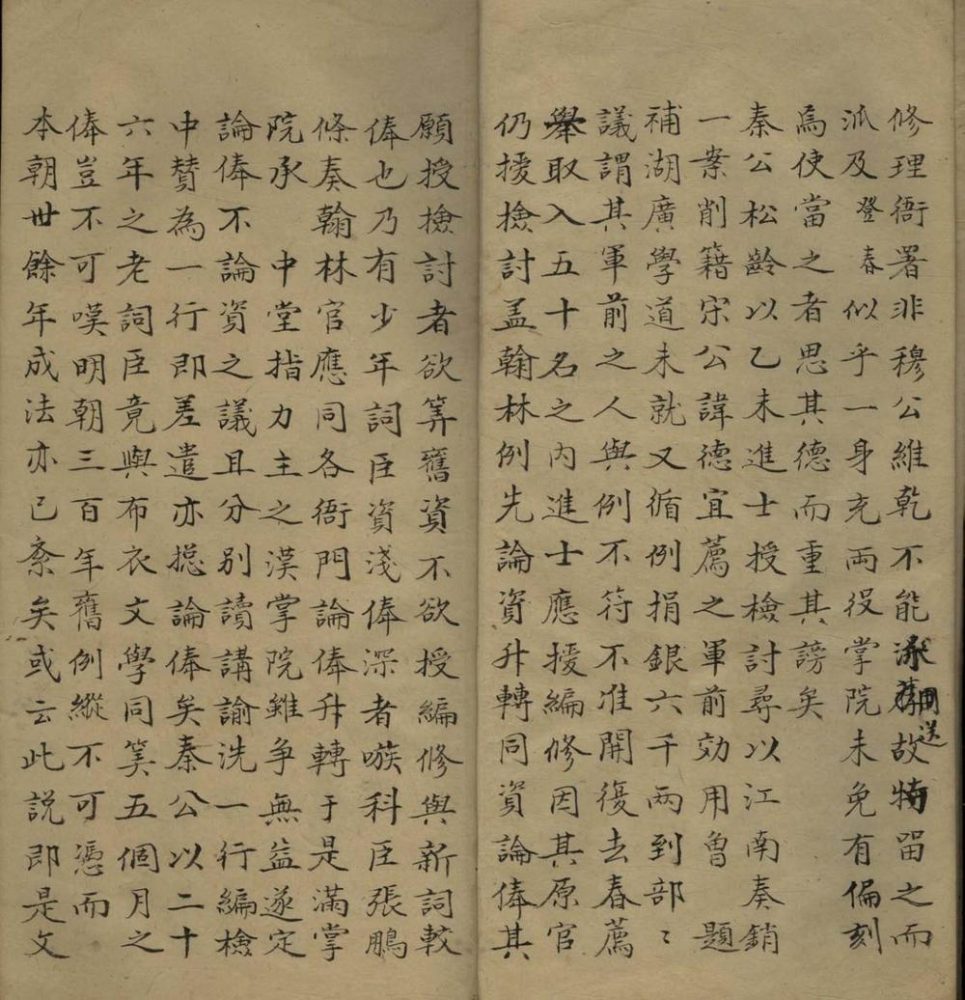 修理衙署非穆公維乾不能故特留之而
派及登春似乎一身充兩役掌院未免有偏刻
焉使當之者思其德而重其謗矣
秦公松齡以乙未進士授檢討尋以江南奏銷
一案削籍宋公諱德宜薦之軍前効用曾題
補湖廣學道未就又循例捐銀六千兩到部〻
議謂其軍前之人與例不符不准開復去春薦
舉取入五十名之內進士應援編修因其原官
仍援檢討盖翰林例先論資升轉同資論俸其
願授檢討者欲筭舊資不欲授編修與新詞較
俸也乃有少年詞臣資淺俸深者嗾科臣張鵬
條奏翰林官應同各衙門論俸升轉于是滿掌
院承中堂指力主之漢掌院雖爭無益遂定
論俸不論資之議且分别讀講諭洗一行編檢
中賛為一行即差遣亦揔論俸矣秦公以二十
六年之老詞臣竟與布衣文學同筭五個月之
俸豈不可嘆明朝三百年舊例縱不可憑而
本朝丗餘年成法亦已紊矣或云此説即是文